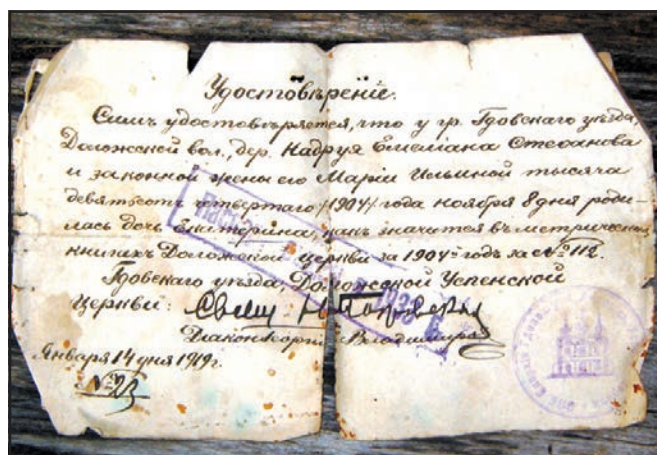 Удостовѣреніе.
Симъ удостовѣряется, что у гр. Гдовскаго уѣзда,
Доложской вол., дер. Кадруя Емеліана Стефанова
и законной жены его Маріи Ильиной тысяча
девятьсотъ четвертаго /1904/ года ноября 8 дня роди-
лась дочь Екатерина, какъ значится въ метрическихъ
книгахъ Доложской церкви за 1904й годъ за № 112.
Гдовскаго уѣзда, Доложской Успенской
церкви: Свящ. Н.
Діаконъ Георгій Владимировъ
Января 14 дня 1919 г.
№ 23